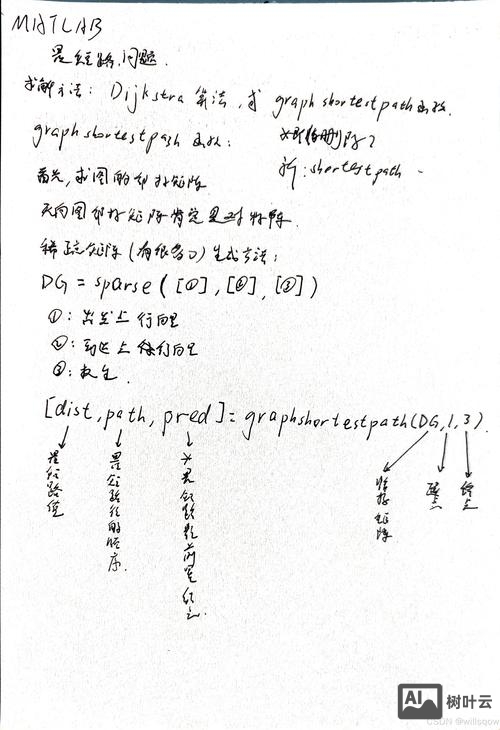 MATLAB
最短路问题.
求解方法: Dijkstra 算法, 或 graphshortestpath 函数.
graphshortestpath 函数:
新: shortestpath
首先, 求图的邻接矩阵
无向图邻接矩阵肯定是对称阵.
稀疏矩阵 (有很多0) 生成方法:
DG = sparse ( [①], [②], [③] )
①: 出发点 行向量
②: 到达点 行向量
③: 权重.
[dist, path, pred] = graphshortestpath(DG, 1, 3)
最短路径
最短路径的顺序.
邻接矩阵
起点
终点
AI 树叶云
CSDN @willsqow